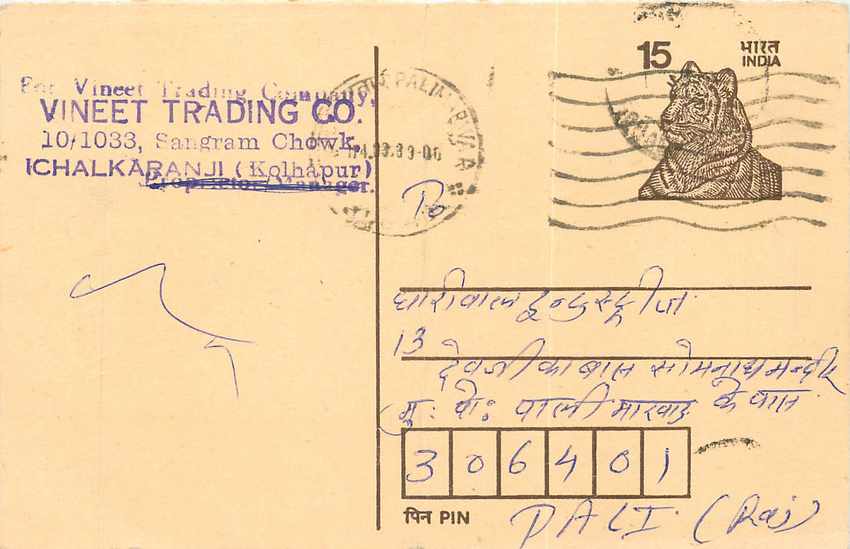 For Vineet Trading Company,
VINEET TRADING CO.
10/1033, Sangram Chowk,
ICHALKARANJI (Kolhapur)
Proprietor/Manager.
15
भारत
INDIA
PALI
To
धारीवाल इन्डस्ट्रीज
13
देवजी का बास सोमनाथ मन्दीर
के पास
मू: पो: पाली मारवाड़
306401
पिन PIN
PALI (Raj)